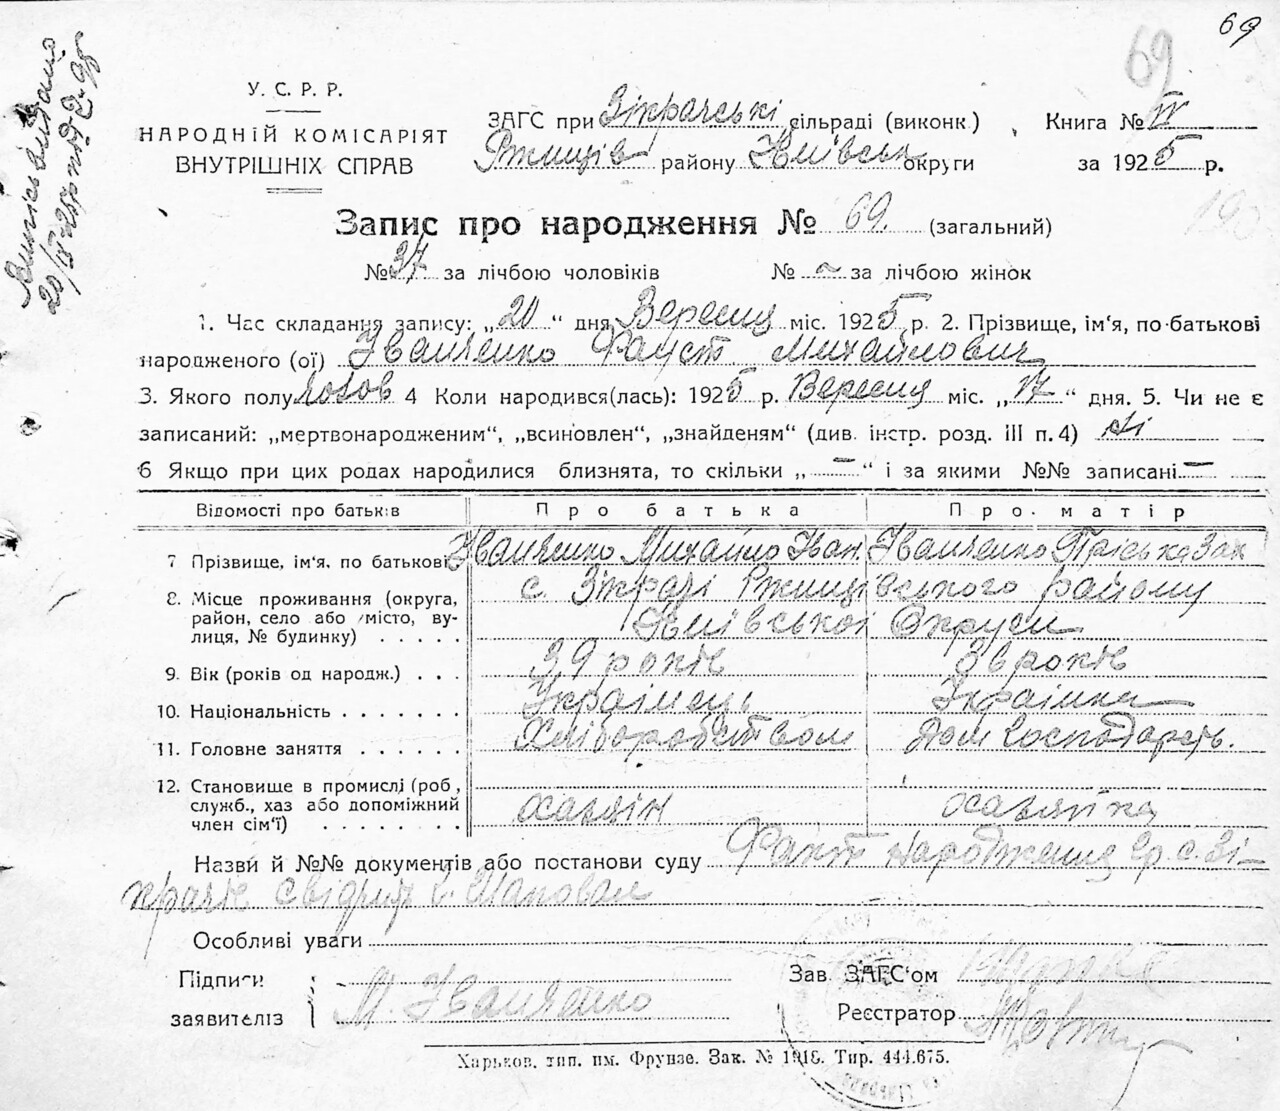 69
69
У. С. Р. Р.
НАРОДНІЙ КОМІСАРІЯТ
ВНУТРІШНІХ СПРАВ
ЗАГС при Зікрачській сільраді (виконк.)
Ржищів району Київськ округи
Книга № IV
за 1925 р.
Запис про народження № 69. (загальний)
№ 37 за лічбою чоловіків № – за лічбою жінок
1. Час складання запису: „20“ дня Вересня міс. 1925 р. 2. Прізвище, ім'я, по-батькові
народженого (ої) Іванченко Фауст Михайлович
3. Якого полу 4 Коли народився(лась): 1925 р. Вересня міс. „17“ дня. 5. Чи не є
записаний: „мертвонародженим“, „всиновлен“, „знайденям“ (див. інстр. розд. III п. 4) Ні
6 Якщо при цих родах народилися близнята, то скільки „–“ і за якими №№ записані –
Відомості про батьків Про батька Про матір
7 Прізвище, ім'я, по батькові Іванченко Михайло Іван. Іванченко Пріська Зах
8. Місце проживання (округа, район, село або місто, вулиця, № будинку) с. Зікрачі Ржищівського району
Київської Округи
9. Вік (років од народж.) 39 років 36 років
10. Національність Українець Українка
11. Головне заняття Хліборобством Дом Господарсть.
12. Становище в промислі (роб, служб., хаз або допоміжний член сім'ї) хазяїн хазяйка
Назви й №№ документів або постанови суду Факт народження гр. с. Зі-
крачі свідчить Шаповал
Особливі уваги
Підписи
заявителів М. Іванченко
Зав. ЗАГС'ом
Реєстратор
Харьков, тип. им. Фрунзе. Зак. № 1918. Тир. 444.675.